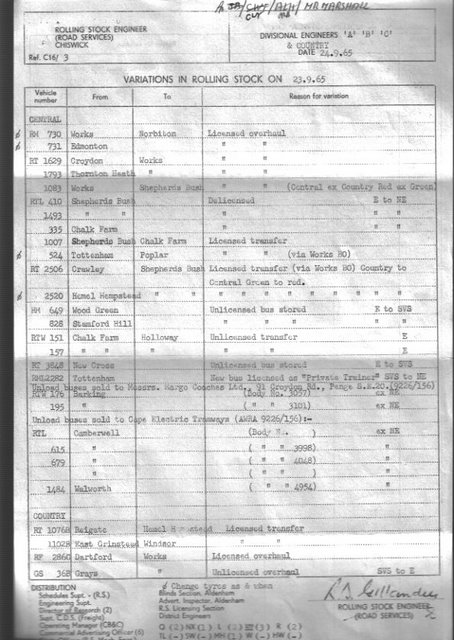 JB/GHT/ALH/MR MARSHALL
ROLLING STOCK ENGINEER
(ROAD SERVICES)
CHISWICK
Ref. C16/ 3
DIVISIONAL ENGINEERS 'A' 'B' 'C'
& COUNTRY
DATE 24.9.65
VARIATIONS IN ROLLING STOCK ON 23.9.65
Vehicle number From To Reason for variation
CENTRAL
ø RM 730 Works Norbiton Licensed overhaul
ø 731 Edmonton " "
RT 1629 Croydon Works " "
1793 Thornton Heath " " "
1083 Works Shepherds Bush " " (Central ex Country Red ex Green)
RTL 410 Shepherds Bush Delicensed E to NE
1493 " " " "
335 Chalk Farm " "
1007 Shepherds Bush Chalk Farm Licensed transfer
ø 524 Tottenham Poplar " " (via Works BO)
RT 2506 Crawley Shepherds Bush Licensed transfer (via Works BO) Country to
Central Green to red.
ø 2520 Hemel Hempstead " " " " " " " " "
RM 649 Wood Green Unlicensed bus stored E to SVS
828 Stamford Hill " " " "
RTW 151 Chalk Farm Holloway Unlicensed transfer E
157 " " " " E
RT 3848 New Cross Unlicensed bus stored E to SVS
RML2282 Tottenham New bus licensed as "Private Trainer" SVS to NE
Unload buses sold to Messrs. Margo Coaches Ltd., 91 Croydon Rd., Penge S.E.20.(9226/156)
RTW 176 Barking (Body No. 3057) ex NE
195 " ( " " 3101) ex NE
Unload buses sold to Cape Electric Tramways (AWRA 9226/156):-
RTL Camberwell (Body No. ) ex NE
615 " ( " " 3998) "
679 " ( " " 4048) "
" ( " " ) "
1484 Walworth ( " " 4954) "
COUNTRY
RT 1076 Reigate Hemel Hempstead Licensed transfer
1102 East Grinstead Windsor " "
RF 286 Dartford Works Licensed overhaul
GS 36 Grays " Unlicensed overhaul SVS to E
DISTRIBUTION
Schedules Supt. - (R.S.)
Engineering Supt.
Director of Research (2)
Supt. C.D.S. (Freight)
Operating Manager (CB&C)
Commercial Advertising Officer (6)
ø Change tyres as & when
Blinds Section, Aldenham
Advert. Inspector, Aldenham
R.S. Licensing Section
District Engineers
ROLLING STOCK ENGINEER
(ROAD SERVICES)